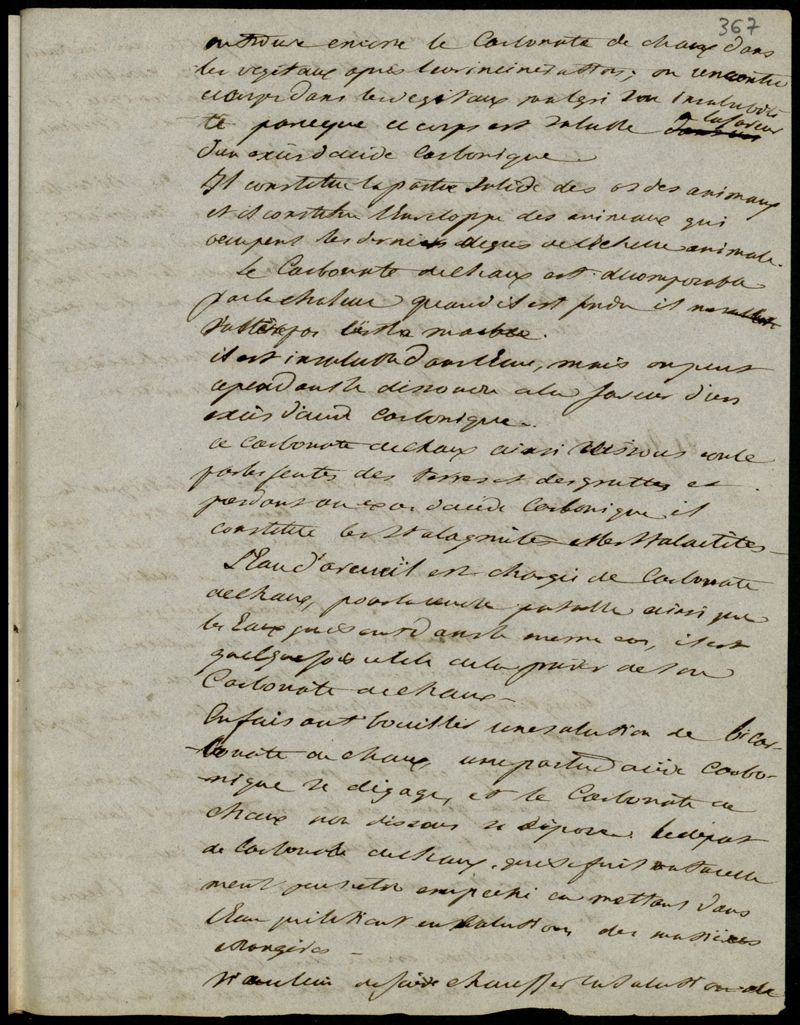 367
on trouve encore le Carbonate de chaux dans
les vegetaux apres leur incineration, on rencontre
ce corps dans les vegetaux malgré son insolubili
té parceque ce corps est soluble a la faveur
d'un excès d'acide Carbonique
Il constitue la partie solide des os des animaux
et il constitue l'enveloppe des animaux qui
occupent les derniers degrés de l'échelle animale.
Le Carbonate de chaux est décomposable
par la chaleur quand il est fondu il
marbre.
il est insoluble dans l'Eau, mais on peut
cependant le dissoudre a la faveur d'un
excès d'acide Carbonique.
ce carbonate de chaux ainsi dissous coule
par les fentes des terres et des grottes et
perdant son excès d'acide Carbonique il
constitue les Stalagmites et les Stalactites
L'Eau d'arcueil est chargée de Carbonate
de chaux, pour la rendre potable ainsi que
les Eaux qui sont dans le meme cas, il est
quelque fois utile de la priver de son
Carbonate de chaux
En faisant bouillir une solution de bicar-
bonate de chaux une partie d'acide Carbo-
nique se dégage, et le Carbonate de
chaux non dissous se dépose. le dépot
de Carbonate de chaux qui se fait naturelle
ment peut etre empeché en mettant dans
l'Eau qui le tient en solution des matières
étrangères
Si au lieu de faire chauffer la solution de